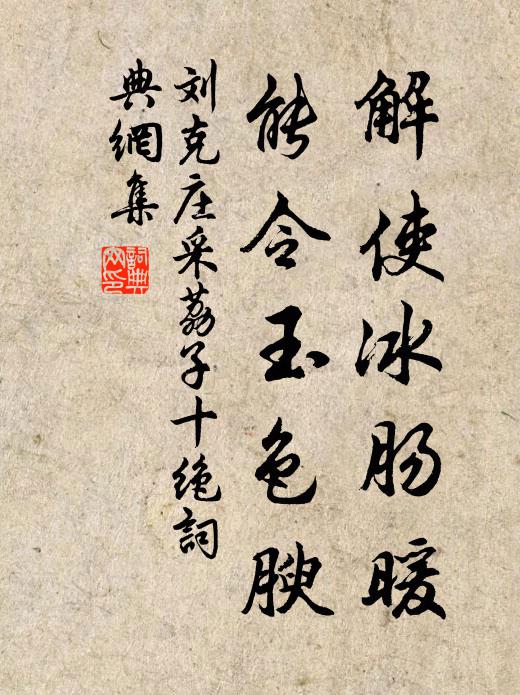 解使冰肠暖
能令玉色腴
刘克庄采荔子十绝詞
典網集
詞典